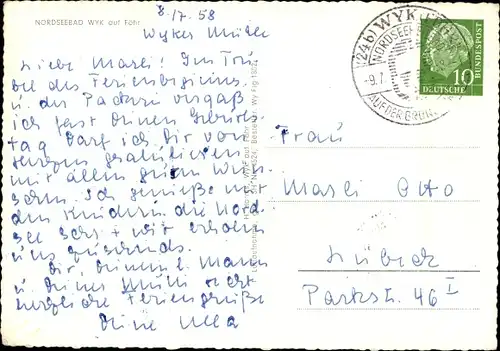 NORDSEEBAD WYK auf Föhr
8./7. 58
Wyker Mühle
Liebe Marli! Im Tru-
bel des Ferienbeginns
u. der Packerei vergaß
ich fast Deinen Geburts-
tag. Darf ich Dir von
Herzen gratulieren
mit allen guten Wün-
schen. Ich genieße mit
den Kindern die Nord-
see sehr + wir erholen
uns zusehends.
Dir, Deinem l. Mann
u. Deiner Mutti recht
herzliche Feriengrüße
Deine Ulla
(24b) WYK
NORDSEE
-9.7.
AUF DER GRÜNEN
10
DEUTSCHE
BUNDESPOST
Frau
Marli Otto
Lübeck
Parkstr. 46 I